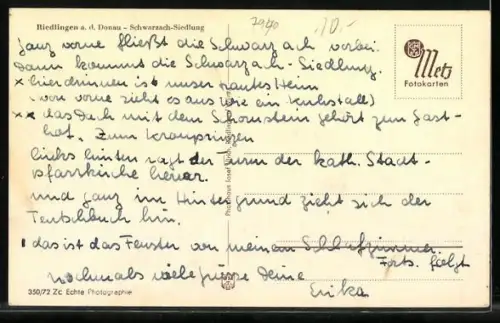 Riedlingen a. d. Donau – Schwarzach-Siedlung
7940
10.-
Ganz vorne fließt die Schwarzach vorbei.
Dann kommt die Schwarzach-Siedlung.
x hierdrinnen ist unser trautes Heim
(von vorne sieht es aus wie ein Kuhstall)
xx das Dach mit dem Schornstein gehört zum Gast-
hof. Zum Kronprinzen
links hinten ragt der Turm der kath. Stadt-
pfarrkirche hervor.
und ganz im Hinter
grund zieht sich der
Teutschbuch hin.
das ist das Fenster von meinem Schlafzimmer.
Forts. folgt
nochmals viele Grüsse Deine
Erika
Metz
Fotokarten
350/72 Zc Echte Photographie